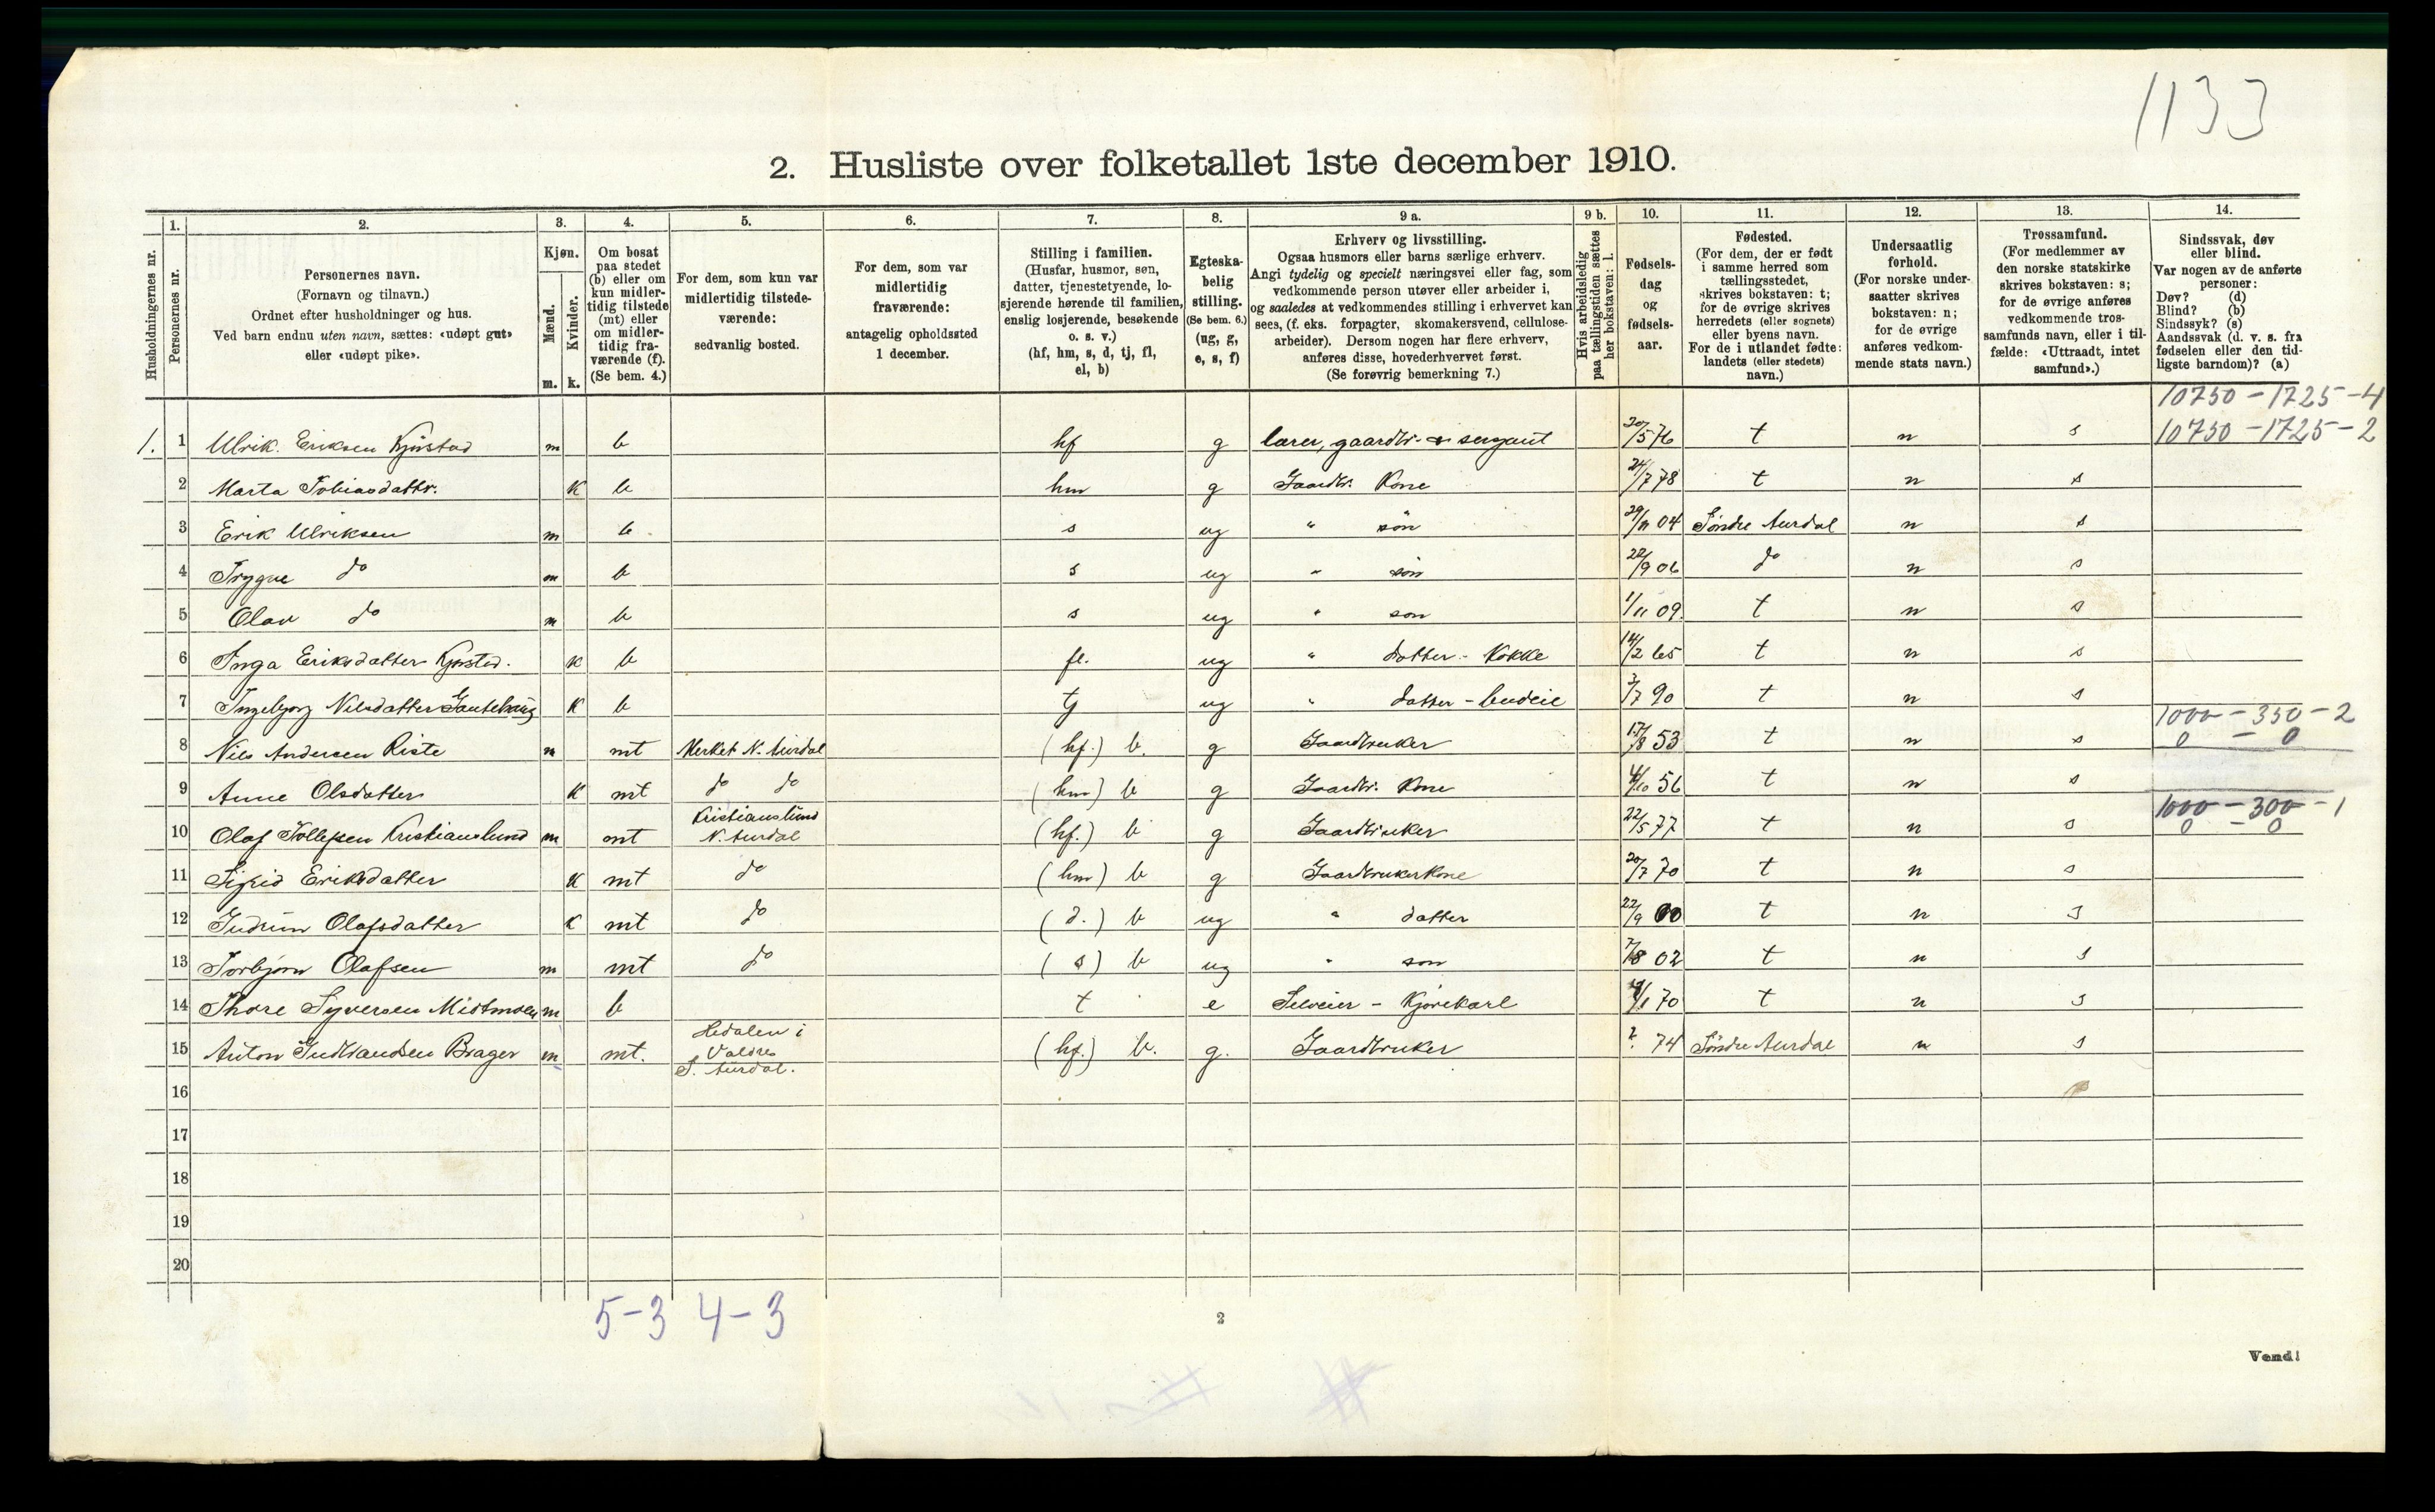 1133
2. Husliste over folketallet 1ste december 1910.
Husholdningernes nr.
1.
Personernes nr.
2.
Personernes navn.
(Fornavn og tilnavn.)
Ordnet efter husholdninger og hus.
Ved barn endnu uten navn, sættes: «udøpt gut»
eller «udøpt pike».
3.
Kjøn.
Mænd.
m.
Kvinder.
k.
4.
Om bosat
paa stedet
(b) eller om
kun midler-
tidig tilstede
(mt) eller
om midler-
tidig fra-
værende (f).
(Se bem. 4.)
5.
For dem, som kun var
midlertidig tilstede-
værende:
sedvanlig bosted.
6.
For dem, som var
midlertidig
fraværende:
antagelig opholdssted
1 december.
7.
Stilling i familien.
(Husfar, husmor, søn,
datter, tjenestetyende, lo-
sjerende hørende til familien,
enslig losjerende, besøkende
o. s. v.)
(hf, hm, s, d, tj, fl,
el, b)
8.
Egteska-
belig
stilling.
(Se bem. 6.)
(ug, g,
e, s, f)
9 a.
Erhverv og livsstilling.
Ogsaa husmors eller barns særlige erhverv.
Angi tydelig og specielt næringsvei eller fag, som
vedkommende person utøver eller arbeider i,
og saaledes at vedkommendes stilling i erhvervet kan
sees, (f. eks. forpagter, skomakersvend, cellulose-
arbeider). Dersom nogen har flere erhverv,
anføres disse, hovederhvervet først.
(Se forøvrig bemerkning 7.)
9 b.
Hvis arbeidsledig
paa tællingstiden sættes
her bokstaven: l.
10.
Fødsels-
dag
og
fødsels-
aar.
11.
Fødested.
(For dem, der er født
i samme herred som
tællingsstedet,
skrives bokstaven: t;
for de øvrige skrives
herredets (eller sognets)
eller byens navn.
For de i utlandet fødte:
landets (eller stedets)
navn.)
12.
Undersaatlig
forhold.
(For norske under-
saatter skrives
bokstaven: n;
for de øvrige
anføres vedkom-
mende stats navn.)
13.
Trossamfund.
(For medlemmer av
den norske statskirke
skrives bokstaven: s;
for de øvrige anføres
vedkommende tros-
samfunds navn, eller i til-
fælde: «Uttraadt, intet
samfund».)
14.
Sindssvak, døv
eller blind.
Var nogen av de anførte
personer:
Døv? (d)
Blind? (b)
Sindssyk? (s)
Aandssvak (d. v. s. fra
fødselen eller den tid-
ligste barndom)? (a)
10750 - 1725 - 4
1. 1 Ulrik Eriksen Kjøstad m b hf g lærer, gaardbr. sergeant 20/5 76 t n s 10750 - 1725 - 2
2 Marta Tobiasdattr. k b hm g Gaardbr. Kone 24/7 78 t n s
3 Erik Ulriksen m b s ug " søn 04 Søndre Aurdal n s
4 Trygve do m b s ug " søn 22/9 06 do n s
5 Olav do m b s ug " søn 1/11 09. t n s
6 Inga Eriksdatter Kjøstad. k b fl. ug " datter - Kokke 14/2 65 t n s
7 Ingebjørg Nilsdatter k b tj ug " datter - budeie 3/7 90 t n s
1000 - 350 - 2
8 Nils Andersen Riste m mt Merket N. Aurdal (hf.) b. g Gaardbruker 17/8 53 t n s 0 - 0
9 Anne Olsdatter k mt do do (hm) b g Gaardbr. Kone 4/10 56 t n s
Kristianslund 1000 - 300 - 1
10 Olaf Tollefsen Kristianslund m mt N. Aurdal (hf.) b g Gaardbruker 22/5 77 t n s 0 - 0
11 Sigrid Eriksdatter k mt do (hm) b g Gaardbrukerkone 20/7 70 t n s
12 Gudrun Olafsdatter k mt do (d.) b ug " datter 22/9 00 t n s
13 Torbjørn Olafsen m mt do (s) b ug " søn 7/8 02 t n s
14 Thore Syversen Midtmoen m b t e Selveier - Kjørekarl 70 t n s
Hedalen i
15 Anton Gudbrandsen Brager m mt. Valdres (hf.) b. g. Gaardbruker ? 74 Søndre Aurdal n s
S. Aurdal.
16
17
18
19
20
5-3 4-3
2
Vend!